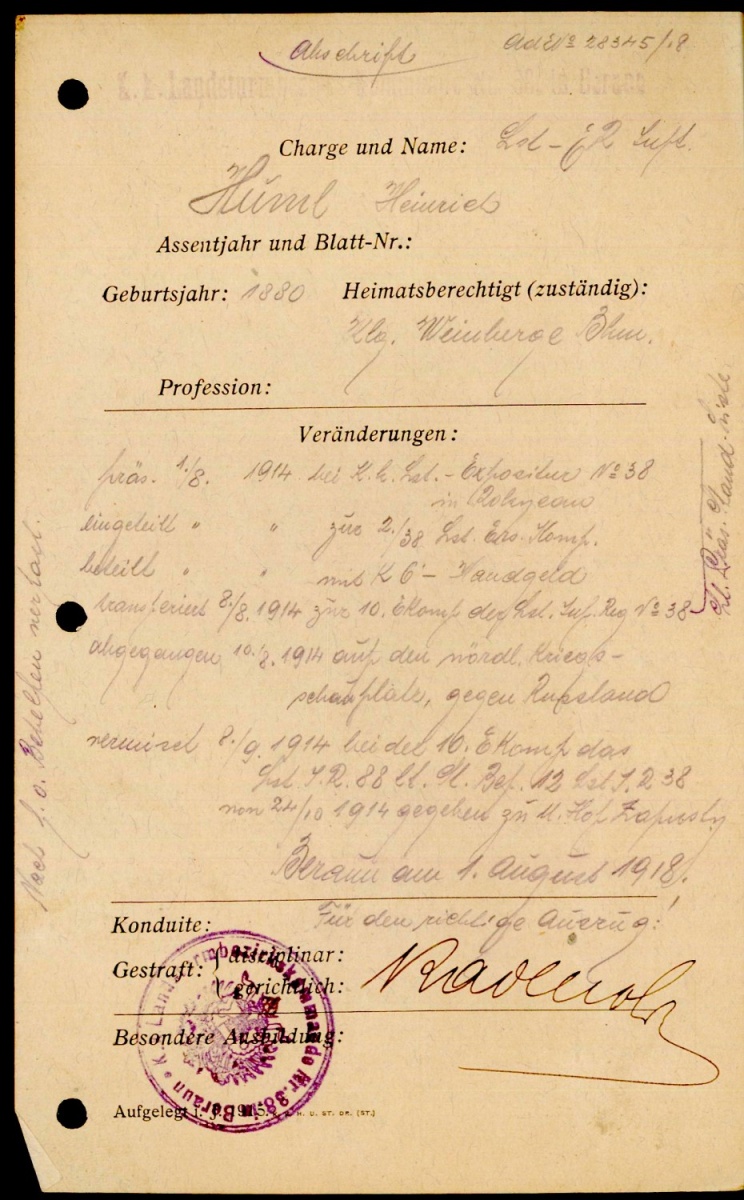 Abschrift
Ad No 28345/18
Charge und Name: Lst - I R Inft.
Huml Heinrich
Assentjahr und Blatt-Nr.:
Geburtsjahr: 1880 Heimatsberechtigt (zuständig):
Klg. Weinberge Bhm.
Profession:
Veränderungen:
präs. 1./8. 1914 bei K.k. Lst. - Expositur No 38
in Rokycan
eingeteilt " " zur 2./38 Lst. Ers. Komp.
beteilt " " mit K 6 - Handgeld
transferiert 8./8. 1914 zur 10. EKomp der Lst. Inf. Reg No 38
abgegangen 10./8. 1914 auf den nördl. Kriegs-
schauplatz, gegen Russland
vermisst 8./9. 1914 bei der 10. EKomp das
Lst. I. R. 38 lt. Bef. 12 Lst I. R 38
von 24/10 1914 gegeben zu Hof Zapusty
Beraun am 1. August 1918.
Für den richtige Auszug!
Konduite:
Gestraft: disciplinar:
gerichtlich:
Besondere Ausbildung:
K. k. Landsturmbezirkskommando Nr. 38 in Beraun
Aufgelegt i. J. 1915. K. K. H. U. ST. DR. (ST.)
Nach h. o. Behelfen verfasst.